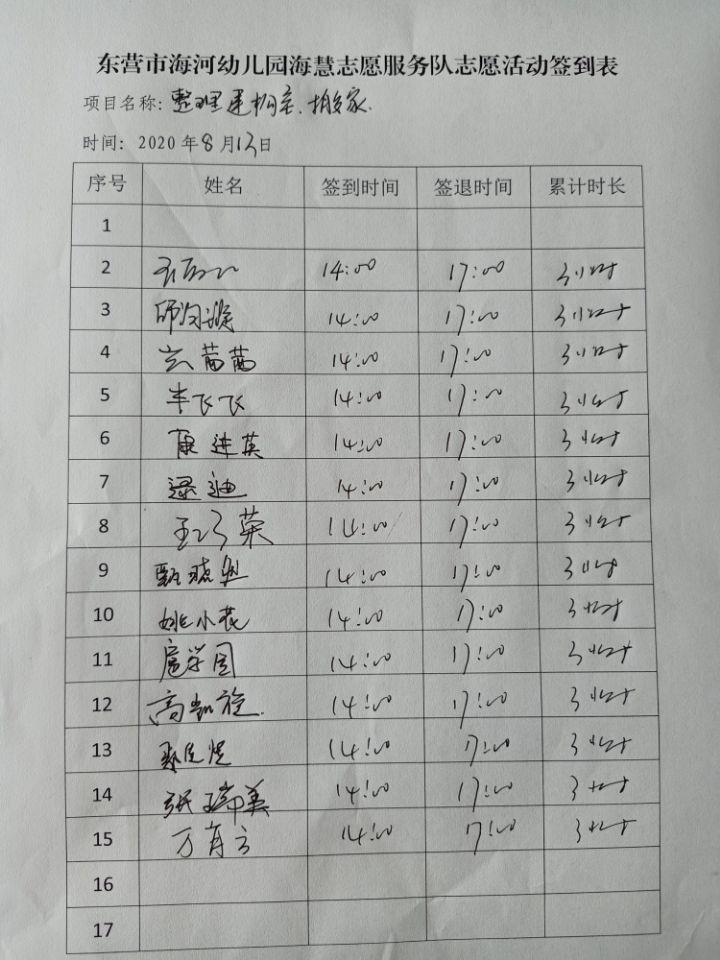 东营市海河幼儿园海慧志愿服务队志愿活动签到表
项目名称：整理建构室、搬家.
时间：2020年8月13日
序号 姓名 签到时间 签退时间 累计时长
1
2 14:00 17:00 3小时
3 14:00 17:00 3小时
4 茜茜 14:00 17:00 3小时
5 飞飞 14:00 17:00 3小时
6 进英 14:00 17:00 3小时
7 迪 14:00 17:00 3小时
8 荣 14:00 17:00 3小时
9 甄 14:00 17:00 3小时
10 姚小花 14:00 17:00 3小时
11 14:00 17:00 3小时
12 高凯旋. 14:00 17:00 3小时
13 14:00 17:00 3小时
14 张瑞美 14:00 17:00 3小时
15 万 14:00 17:00 3小时
16
17